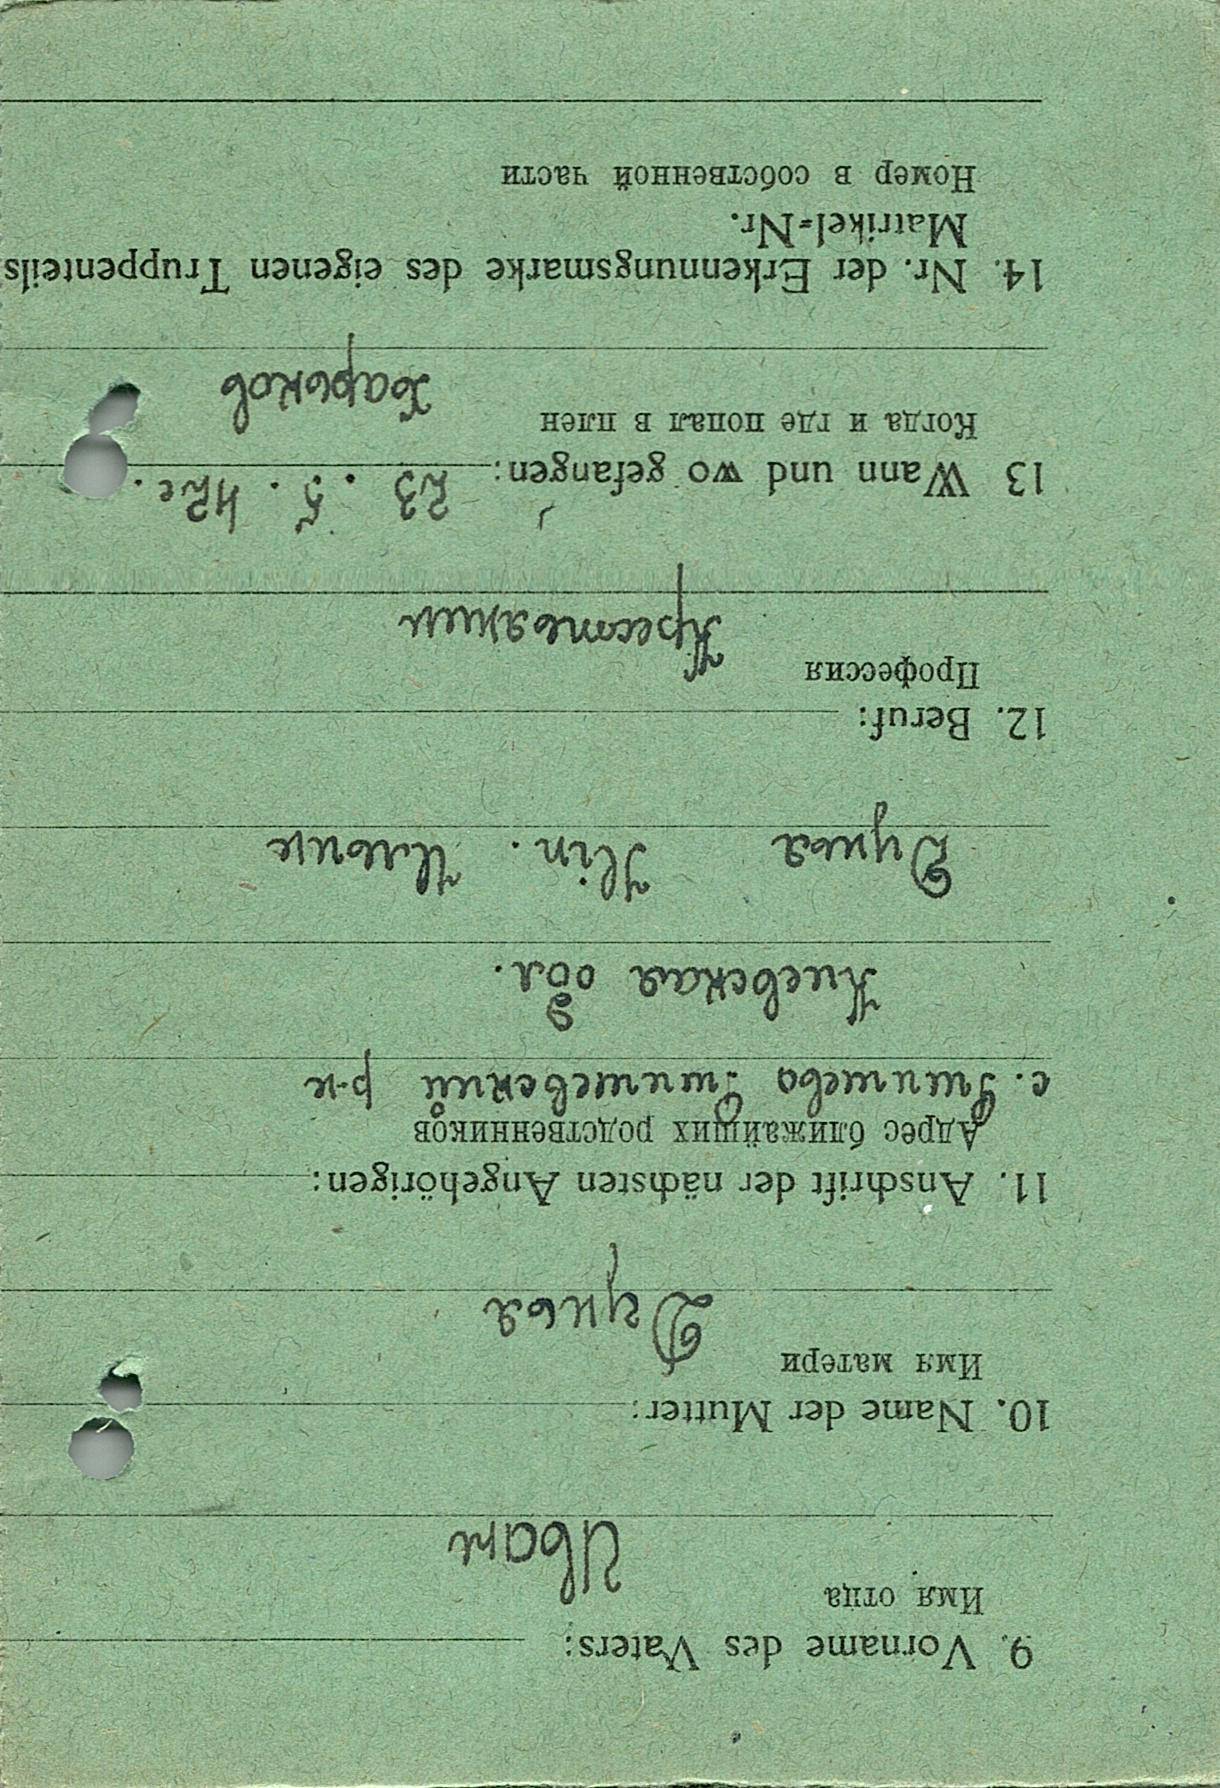 9. Vorname des Vaters:
Имя отца
Иван
10. Name der Mutter:
Имя матери
Дунья
11. Anschrift der nächsten Angehörigen:
Адрес ближайших родственников
с. р-н
Киевская обл.
Дунья
12. Beruf:
Профессия
Крестьянин
13 Wann und wo gefangen: 23. 5. 42г.
Когда и где попал в плен
Харьков
14. Nr. der Erkennungsmarke des eigenen Truppenteils
Matrikel-Nr.
Номер в собственной части